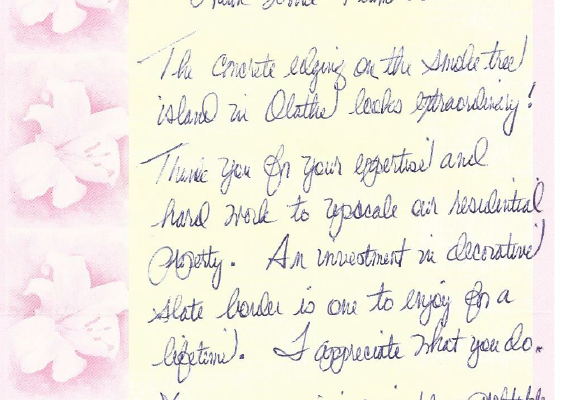 The concrete edging on the smoke tree
island in Olathe looks extraordinary!
Thank you for your expertise and
hard work to upscale our residential
property. An investment in decorative
slate border is one to enjoy for a
lifetime. I appreciate what you do.